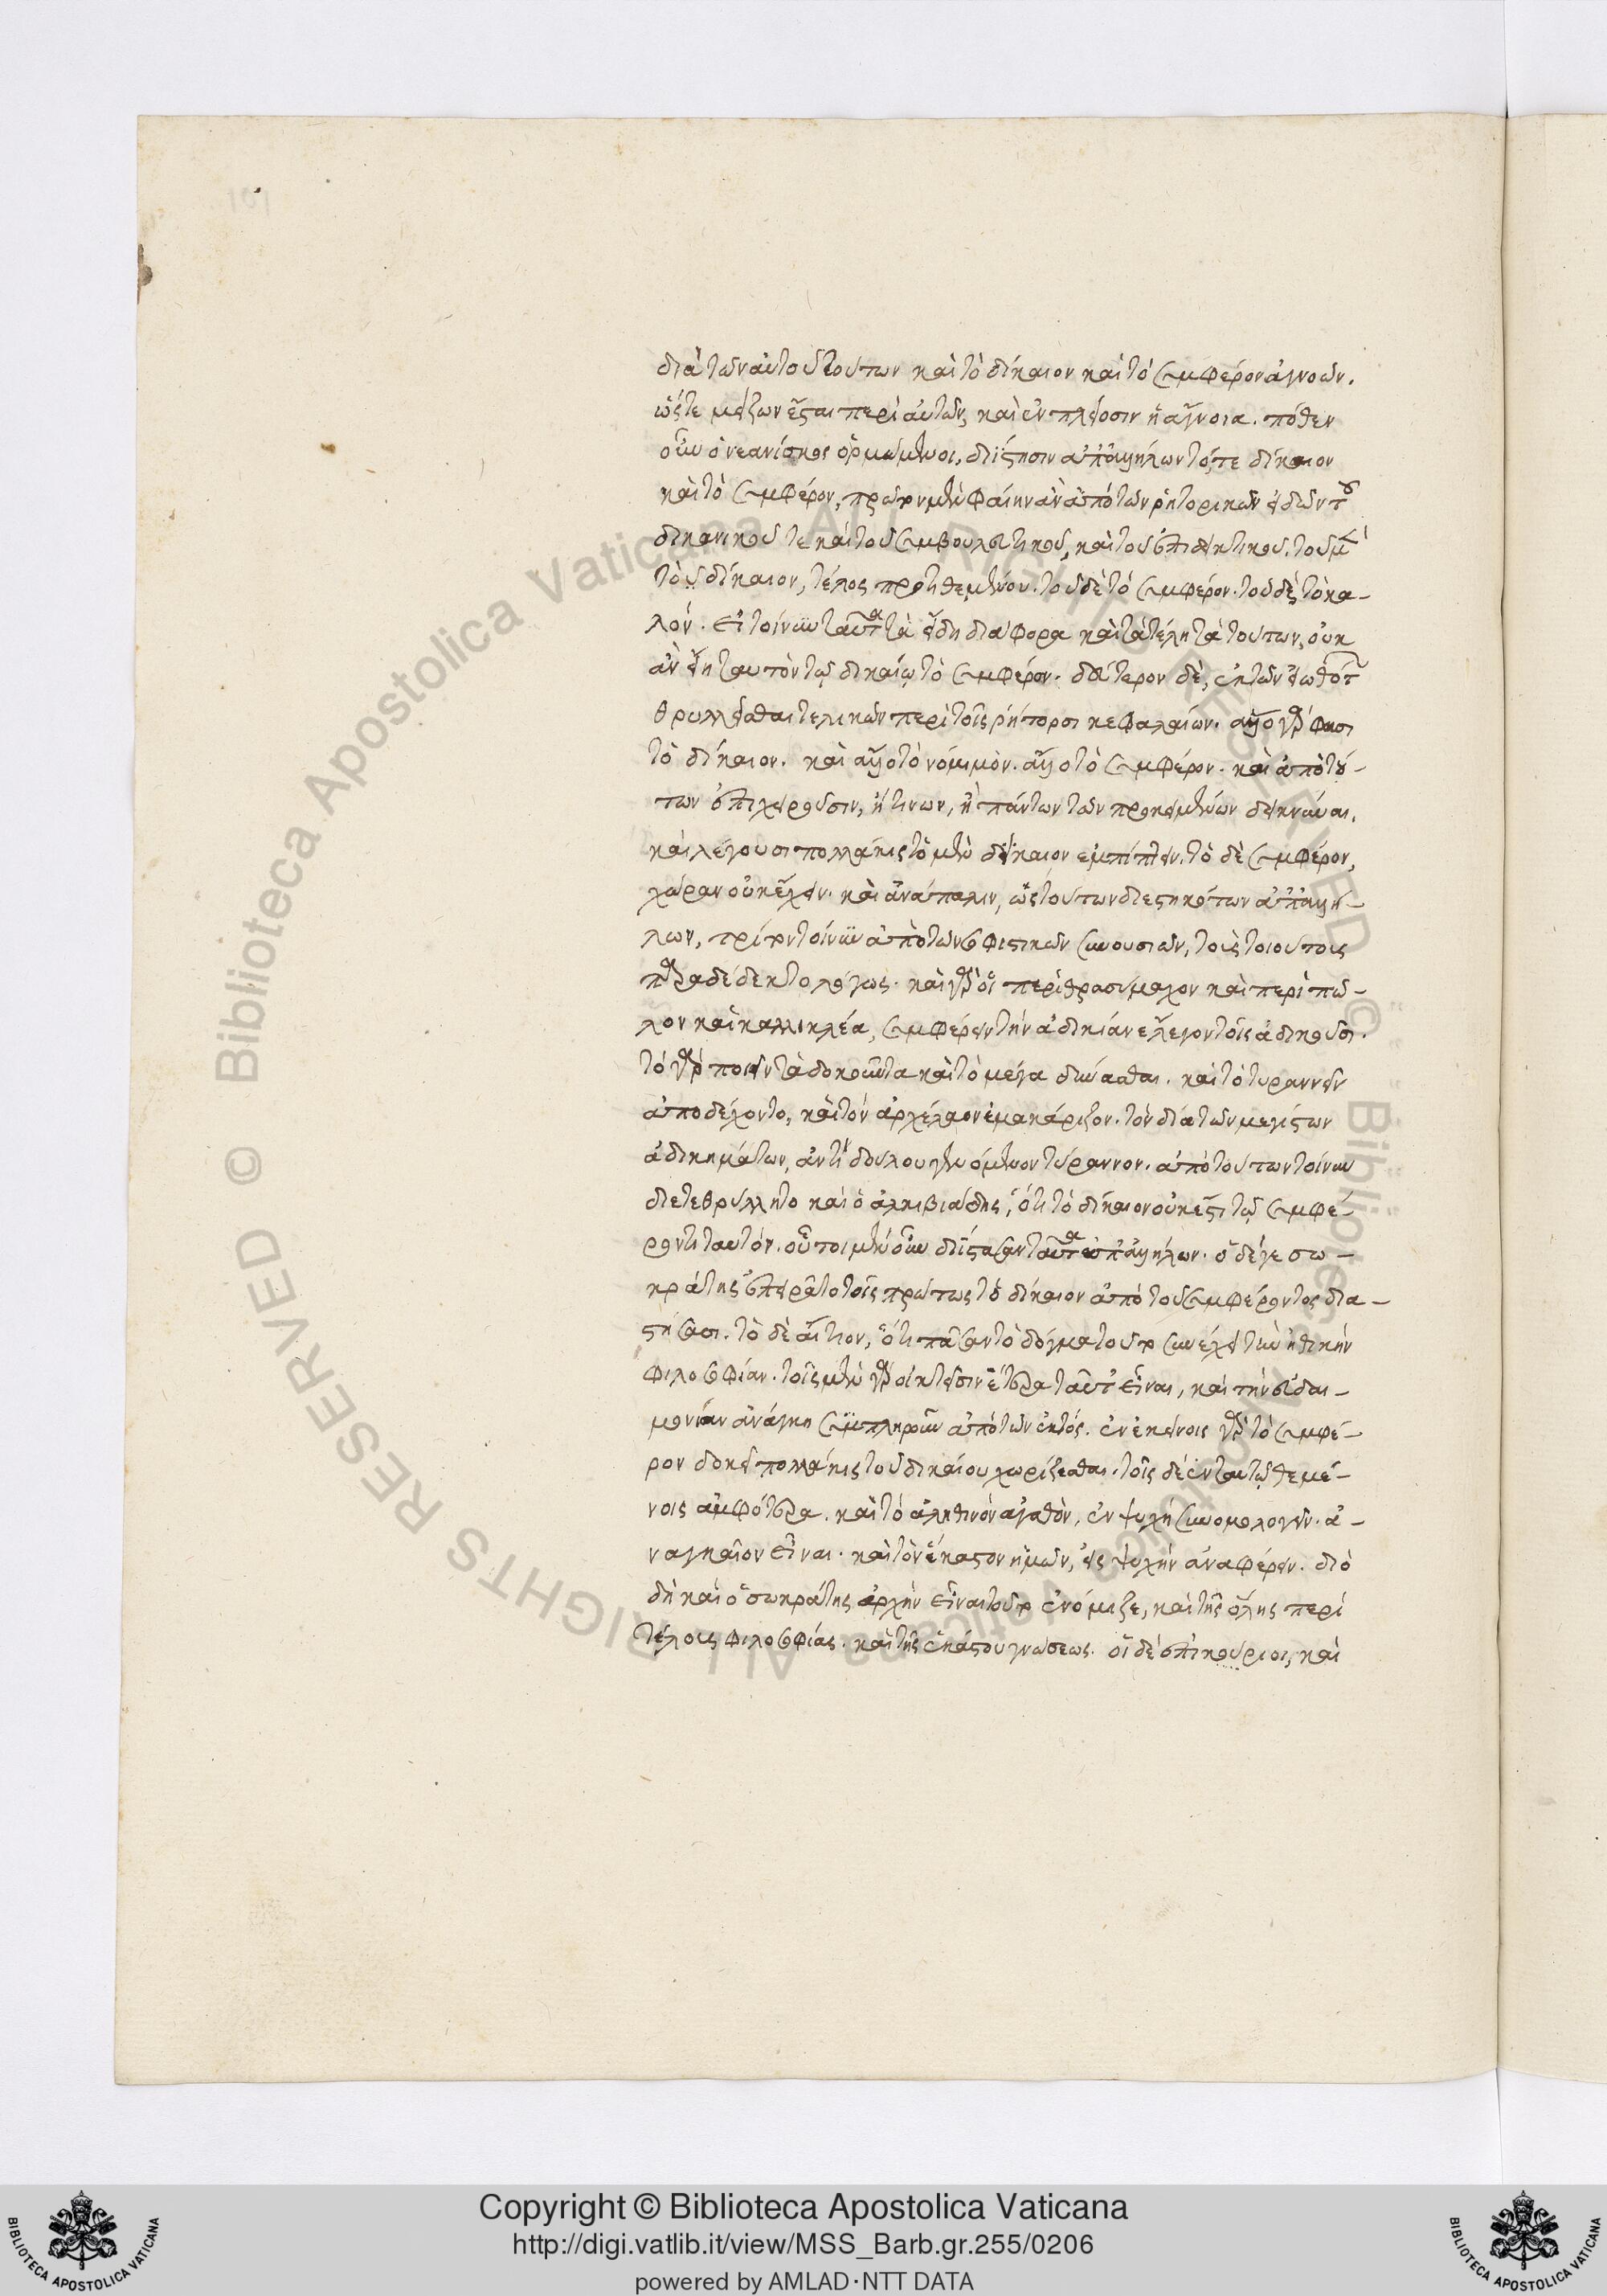 διὰ τῶν αὐτοῦ τούτων καὶ τὸ δίκαιον καὶ τὸ συμφέρον ἀγνοῶν.
ὥστε μείζων ἔσται περὶ αὐτῶν, καὶ ἐν πλείοσιν ἡ ἄγνοια. πόθεν
οὖν ὁ νεανίσκος ὁρμώμενοι, διίστησιν ἀπ' ἀλλήλων τό, τε δίκαιον
καὶ τὸ συμφέρον, πρῶτον μὲν φαίην ἂν ἀπὸ τῶν ῥητορικῶν εἰδῶν τοῦ
δικανικοῦ τε καὶ τοῦ συμβουλευτικοῦ, καὶ τοῦ ἐπιδεικτικοῦ. τοῦ μὲν
τὸ δίκαιον, τέλος προτιθεμένου. τοῦ δὲ τὸ συμφέρον. τοῦ δὲ, τὸ κα-
λόν. εἰ τοίνυν ταῦτα τὰ εἴδη διάφορα καὶ τὰ τέλη τὰ τούτων, οὐκ
ἂν εἴη ταυτὸν τῷ δικαίῳ τὸ συμφέρον. δεύτερον δὲ, ἐκ τῶν εἰωθότων
θρυλλεῖσθαι τελικῶν περὶ τοῖς ῥήτορσι κεφαλαίων. ἄλλο γάρ φασι
τὸ δίκαιον. καὶ ἄλλο τὸ νόμιμον. ἄλλο τὸ συμφέρον. καὶ ἀπὸ τού-
των ἐπιχειροῦσιν, ἤ τινων, ἢ πάντων τῶν προκειμένων δεικνύναι.
καὶ λέγουσι πολλάκις τὸ μὲν δίκαιον ἐμπίπτειν. τὸ δὲ συμφέρον,
χώραν οὐκ ἔχειν. καὶ ἀνάπαλιν, ὡς τούτων διεστηκότων ἀπ' ἀλλή-
λων, τρίτον τοίνυν ἀπὸ τῶν σοφιστικῶν συνουσιῶν, τοὺς τοιούτους
παραδέδεκτο λόγους. καὶ γὰρ οἱ περὶ θρασύμαχον καὶ περὶ πῶ-
λον καὶ καλλικλέα, συμφέρειν τὴν ἀδικίαν ἔλεγον τοῖς ἀδικοῦσι.
τὸ γὰρ ποιεῖν τὰ δοκοῦντα καὶ τὸ μέγα δύνασθαι. καὶ τὸ τυραννεῖν
ἀποδέχοντο, καὶ τὸν ἀρχέλαον ἐμακάριζον. τὸν διὰ τῶν μεγίστων
ἀδικημάτων, ἀντὶ δούλου γενόμενον τύραννον. ἀπὸ τούτων τοίνυν
διετεθρύλλητο καὶ ὁ ἀλκιβιάδης, ὅτι τὸ δίκαιον οὐκ ἔστι τῷ συμφέ-
ροντι ταυτόν. οὗτοι μὲν οὖν διΐστασαν ταῦτα ἀπ' ἀλλήλων. ὁ δέ γε σω-
κράτης ἐπειρᾶτο τοῖς πρώτως τὸ δίκαιον ἀπὸ τοῦ συμφέροντος δια-
στήσασι. τὸ δὲ αἴτιον, ὅτι πᾶσαν τὸ δόγμα τοῦτο συνέχει τὴν ἠθικὴν
φιλοσοφίαν. τοῖς μὲν γὰρ οἰκτεῖσιν ἕτερα ταῦτ' εἶναι, καὶ τὴν εὐδαι-
μονίαν ἀνάγκη συμπληροῦν ἀπὸ τῶν ἐκτός. ἐν ἐκείνοις γὰρ τὸ συμφέ-
ρον δοκεῖ πολλάκις τοῦ δικαίου χωρίζεσθαι. τοῖς δὲ ἐν ταυτῷ θεμέ-
νοις ἀμφότερα. καὶ τὸ ἀληθινὸν ἀγαθὸν, ἐν ψυχῇ συνομολογεῖν. ἀ-
ναγκαῖον εἶναι. καὶ τὸν ἕκαστον ἡμῶν, εἰς ψυχὴν ἀναφέρειν. διὸ
δὴ καὶ ὁ σωκράτης ἀρχὴν εἶναι τοῦτο ἐνόμιζε, καὶ τῆς ὅλης περὶ
τέλους φιλοσοφίας. καὶ τῆς ἑκάστου γνώσεως. οἱ δὲ ἐπικούριοι, καὶ
Copyright © Biblioteca Apostolica Vaticana
http://digi.vatlib.it/view/MSS_Barb.gr.255/0206
powered by AMLAD·NTT DATA
BIBLIOTECA APOSTOLICA VATICANA
BIBLIOTECA APOSTOLICA VATICANA